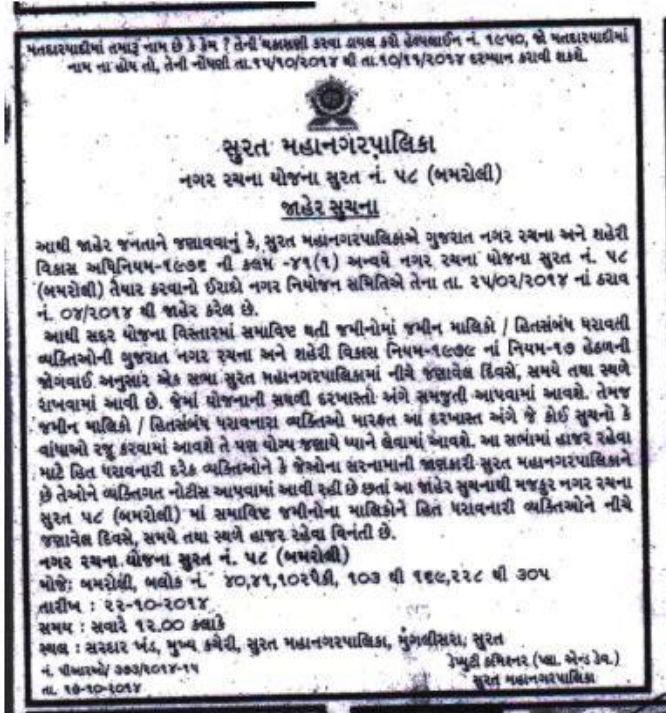 મતદારયાદીમાં તમારૂં નામ છે કે કેમ ? તેની ચકાસણી કરવા ડાયલ કરો હેલ્પલાઈન નં. ૧૯૫૦, જો મતદારયાદીમાં
નામ ના હોય તો, તેની નોંધણી તા.૧૫/૧૦/૨૦૧૪ થી તા.૧૦/૧૧/૨૦૧૪ દરમ્યાન કરાવી શકશે.
સુરત મહાનગરપાલિકા
નગર રચના યોજના સુરત નં. ૫૮ (બમરોલી)
જાહેર સુચના
આથી જાહેર જનતાને જણાવવાનું કે, સુરત મહાનગરપાલિકાએ ગુજરાત નગર રચના અને શહેરી
વિકાસ અધિનિયમ-૧૯૭૬ ની કલમ -૪૧(૧) અન્વયે નગર રચના યોજના સુરત નં. ૫૮
(બમરોલી) તૈયાર કરવાનો ઈરાદો નગર નિયોજન સમિતિએ તેના તા. ૨૫/૦૨/૨૦૧૪ નાં ઠરાવ
નં. ૦૪/૨૦૧૪ થી જાહેર કરેલ છે.
આથી સદર યોજના વિસ્તારમાં સમાવિષ્ટ થતી જમીનોમાં જમીન માલિકો / હિતસંબંધ ધરાવતી
વ્યક્તિઓની ગુજરાત નગર રચના અને શહેરી વિકાસ નિયમ-૧૯૭૯ નાં નિયમ-૧૭ હેઠળની
જોગવાઈ અનુસાર એક સભા સુરત મહાનગરપાલિકામાં નીચે જણાવેલ દિવસે, સમયે તથા સ્થળે
રાખવામાં આવી છે. જેમાં યોજનાની સઘળી દરખાસ્તો અંગે સમજુતી આપવામાં આવશે. તેમજ
જમીન માલિકો / હિતસંબંધ ધરાવનારા વ્યક્તિઓ મારફત આ દરખાસ્ત અંગે જે કોઈ સુચનો કે
વાંધાઓ રજુ કરવામાં આવશે તે પણ યોગ્ય જણાયે ધ્યાને લેવામાં આવશે. આ સભામાં હાજર રહેવા
માટે હિત ધરાવનારી દરેક વ્યક્તિઓને કે જેઓના સરનામાની જાણકારી સુરત મહાનગરપાલિકાને
છે તેઓને વ્યક્તિગત નોટીસ આપવામાં આવી રહી છે છતાં આ જાહેર સુચનાથી મજકુર નગર રચના
સુરત ૫૮ (બમરોલી) માં સમાવિષ્ટ જમીનોના માલિકોને હિત ધરાવનારી વ્યક્તિઓને નીચે
જણાવેલ દિવસે, સમયે તથા સ્થળે હાજર રહેવા વિનંતી છે.
નગર રચના યોજના સુરત નં. ૫૮ (બમરોલી)
મોજે: બમરોલી, બલોક નં. ૪૦,૪૧,૧૦૨પૈકી, ૧૦૩ થી ૧૬૯,૨૨૮ થી ૩૦૫
તારીખ : ૨૨-૧૦-૨૦૧૪
સમય : સવારે ૧૨.૦૦ કલાકે
સ્થલ : સરદાર ખંડ, મુખ્ય કચેરી, સુરત મહાનગરપાલિકા, મુગલીસરા, સુરત
ડેપ્યુટી કમિશ્નર (પ્લા. એન્ડ ડેવ.)
નં. પીઆરઓ/ ૩૭૩/૨૦૧૪-૧૫
સુરત મહાનગરપાલિકા
તા. ૧૭-૧૦-૨૦૧૪